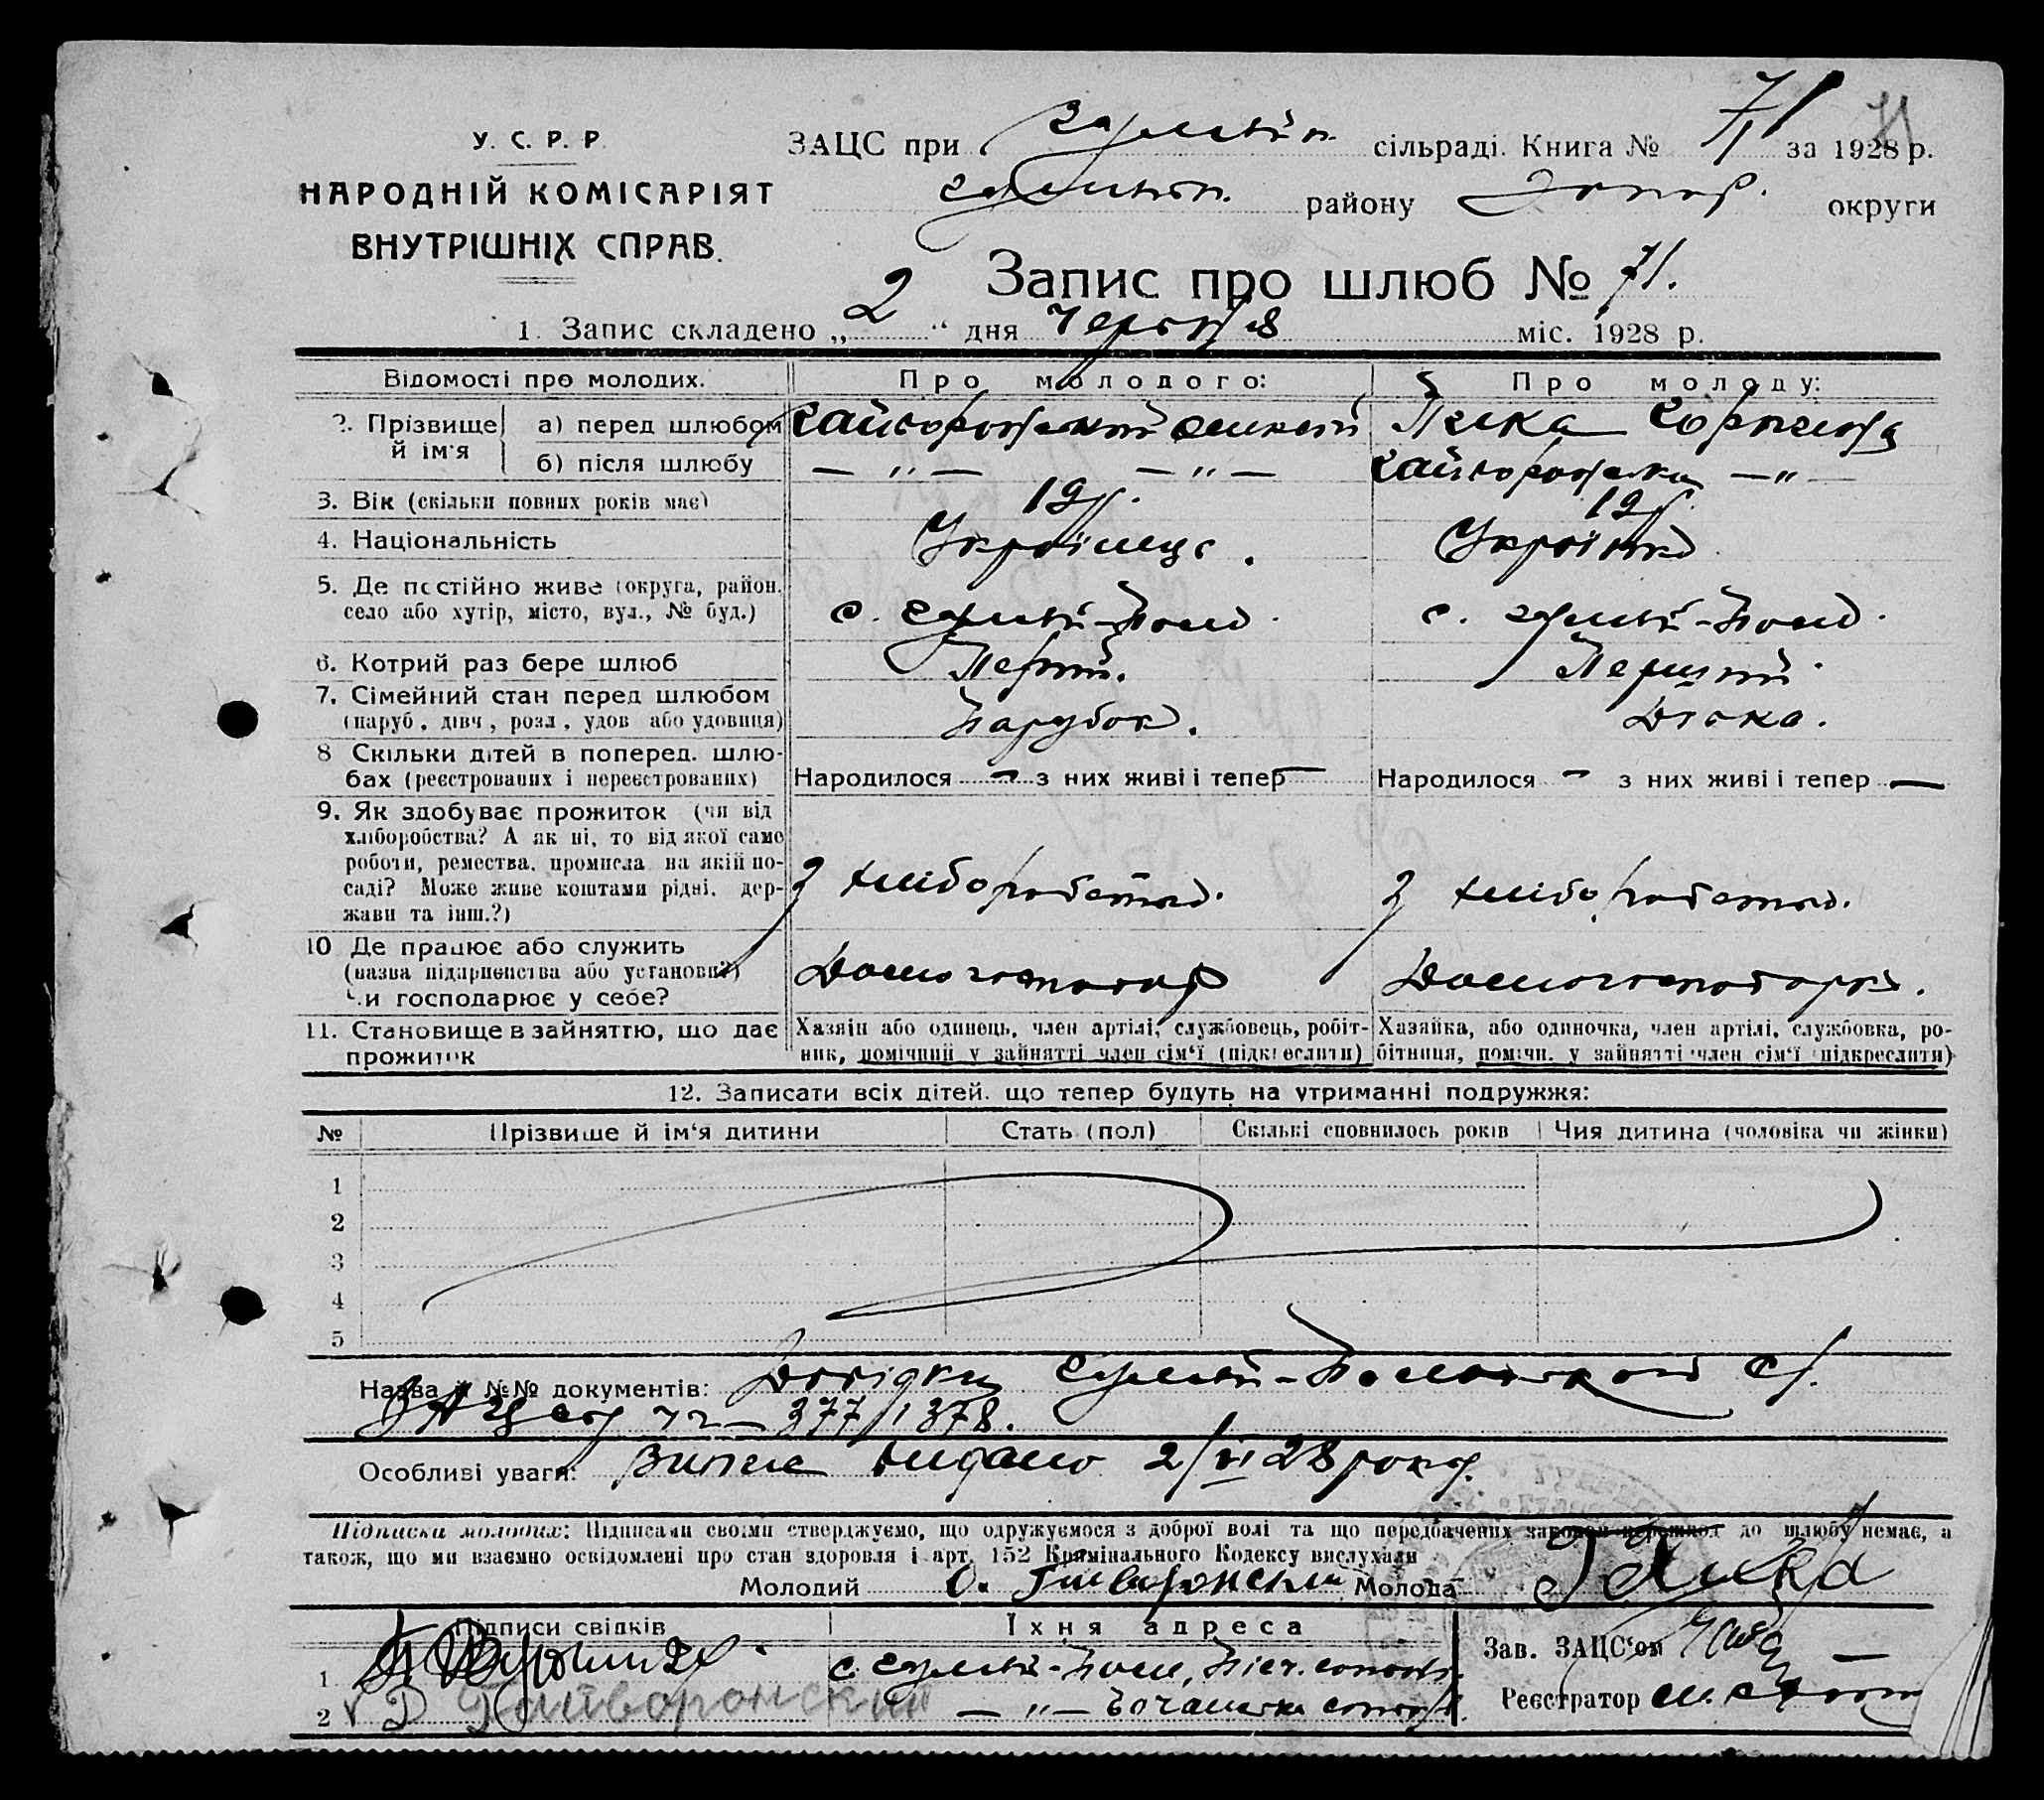 У. С. Р. Р.
НАРОДНІЙ КОМІСАРІЯТ
ВНУТРІШНІХ СПРАВ.
ЗАЦС при Гуляйп. сільраді. Книга № 71 за 1928 р.
Гуляйпіл. району Запор. округи
Запис про шлюб № 71.
1. Запис складено „2“ дня Червня міс. 1928 р.
Відомості про молодих. Про молодого: Про молоду:
2. Прізвище й ім'я
а) перед шлюбом Гайворонський Пєска
б) після шлюбу — „ — — „ — Гайворонська — „ —
3. Вік (скільки повних років має) 19р. 19р.
4. Національність Українець. Українка
5. Де постійно живе (округа, район, село або хутір, місто, вул., № буд.) с. Гуляй-Поле. с. Гуляй-Поле.
6. Котрий раз бере шлюб Перший. Перший.
7. Сімейний стан перед шлюбом (паруб., дівч., розл., удов або удовиця) Парубок. Дівка.
8 Скільки дітей в поперед. шлюбах (реєстрованих і нереєстрованих) Народилося — з них живі і тепер — Народилося — з них живі і тепер —
9. Як здобуває прожиток (чи від хліборобства? А як ні, то від якої саме роботи, ремества, промисла на якій посаді? Може живе коштами рідні, держави та інш.?) З хліборобства. З хліборобства.
10 Де працює або служить (назва підприємства або установи?) Чи господарює у себе? Домогосподар Домогосподарка.
11. Становище в зайняттю, що дає прожиток
Хазяїн або одинець, член артілі, службовець, робітник, помічний у зайнятті член сім'ї (підкреслити)
Хазяйка, або одиночка, член артілі, службовка, робітниця, поміч. у зайнятті член сім'ї (підкреслити)
12. Записати всіх дітей, що тепер будуть на утриманні подружжя:
№ Прізвище й ім'я дитини Стать (пол) Скількі сповнилось років Чия дитина (чоловіка чи жінки)
1
2
3
4
5
Назва й №№ документів: Довідки Гуляй-Польської с/р.
377/1378.
Особливі уваги: Витяг видано 2/VI 28 року.
Підписка молодих: Підписами своїми стверджуємо, що одружуємося з доброї волі та що передбачених законом перешкод до шлюбу немає, а
також, що ми взаємно освідомлені про стан здоровля і арт. 152 Кримінального Кодексу вислухали
Молодий О. Гайворонский Молода
Підписи свідків Їхня адреса Зав. ЗАЦС'ом
1 с. Гуляй-Поле,
Реєстратор
2 Д Гайворонский — „ —